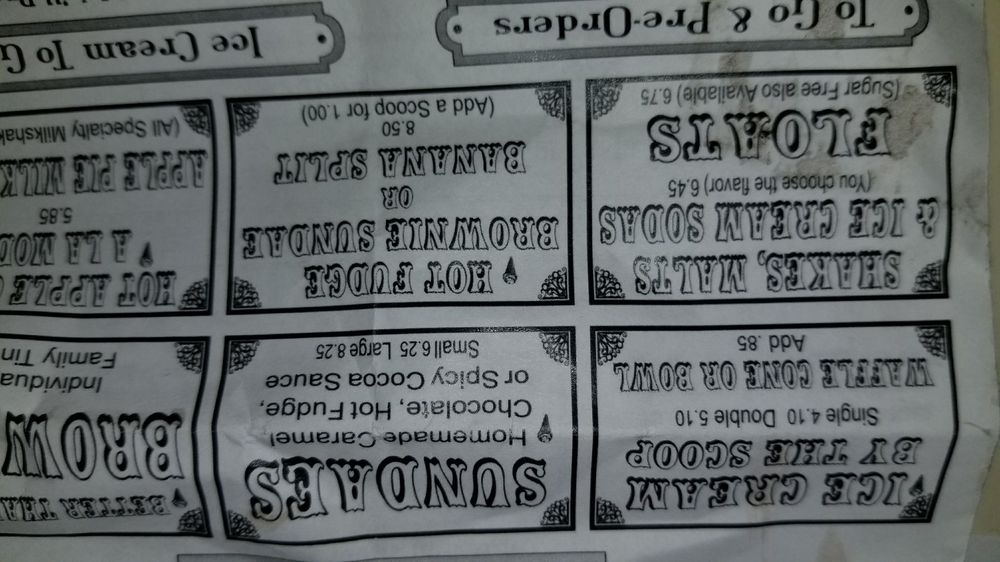 ICE CREAM
BY THE SCOOP
Single 4.10 Double 5.10
WAFFLE CONE OR BOWL
Add .85
SUNDAES
Homemade Caramel
Chocolate, Hot Fudge,
or Spicy Cocoa Sauce
Small 6.25 Large 8.25
BETTER THA
BROW
Individua
Family Tin
SHAKES, MALTS
& ICE CREAM SODAS
(You choose the flavor) 6.45
FLOATS
(Sugar Free also Available) 6.75
HOT FUDGE
BROWNIE SUNDAE
OR
BANANA SPLIT
8.50
(Add a Scoop for 1.00)
HOT APPLE
A LA MOD
5.85
APPLE PIE MILK
(All Specialty Milkshak
To Go & Pre-Orders
Ice Cream To G